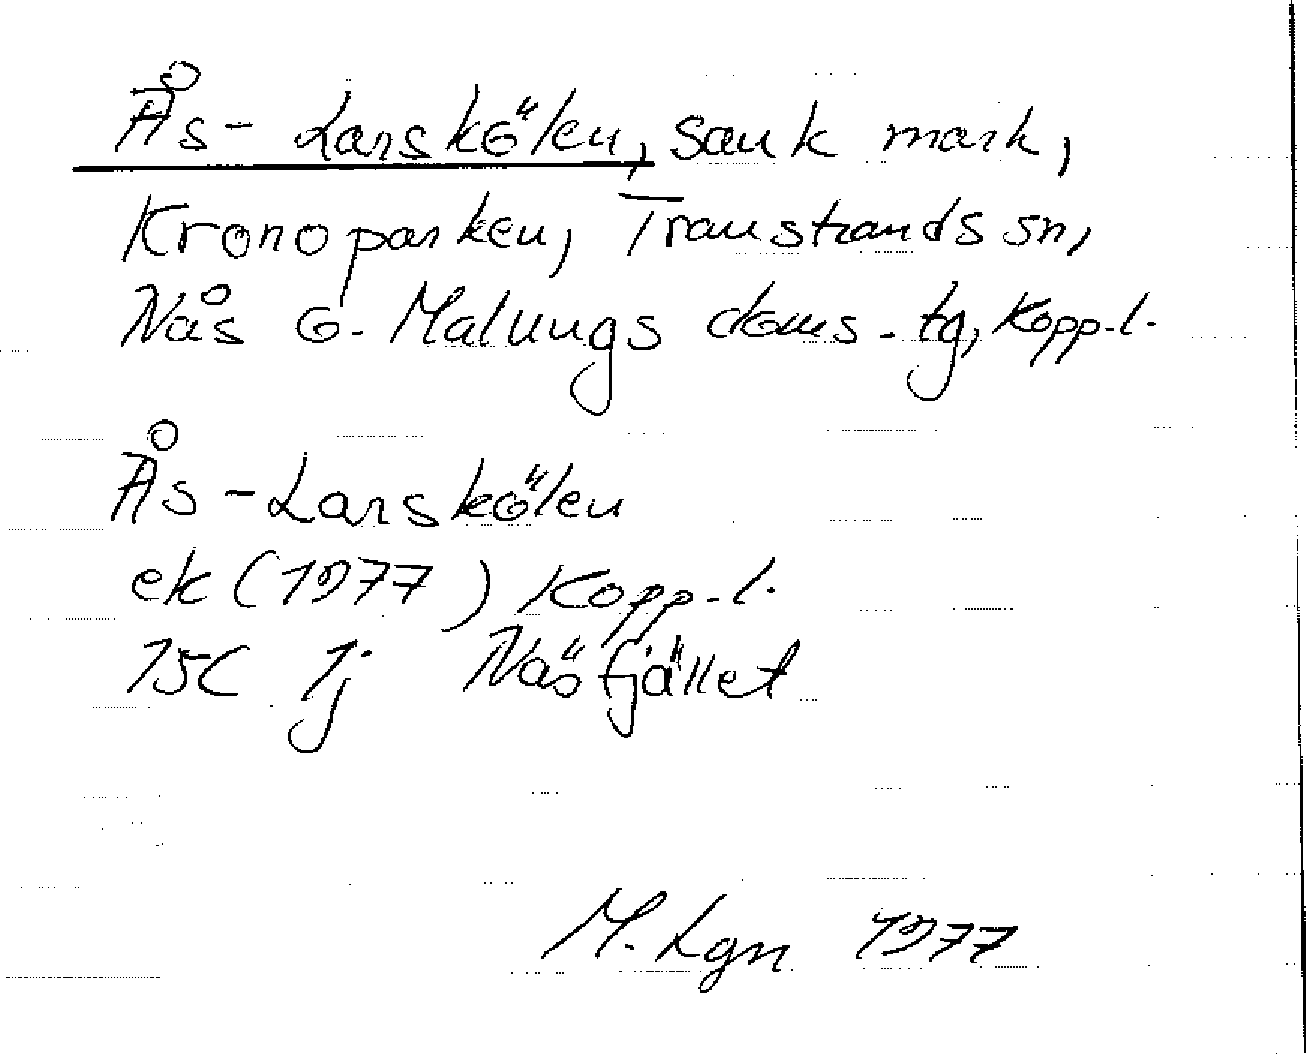 Ås-Larskölen, sank mark,
Kronoparken, Transtrands sn,
Nås o. Malungs doms.tg, Kopp.l.
Ås-Larskölen
ek (1977) Kopp.l.
15C 1j Näsfjället
M. Lgn 1977